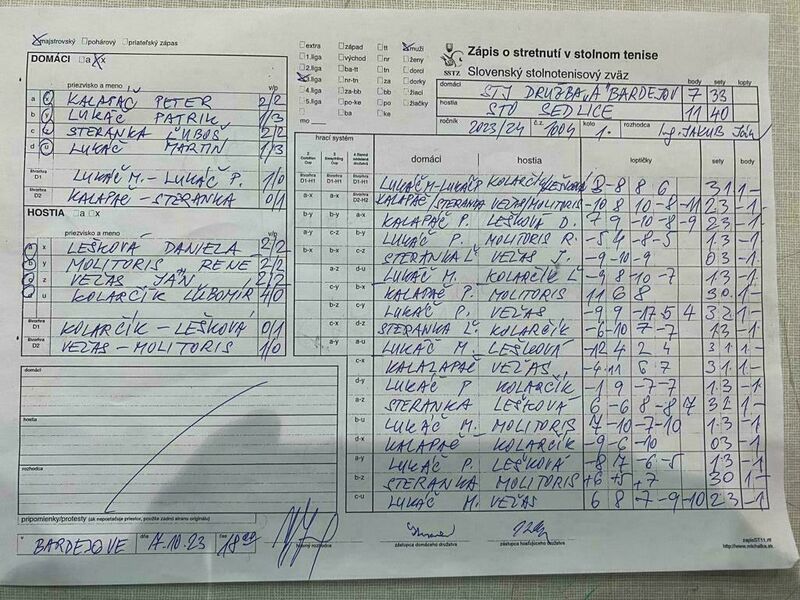 majstrovský pohárový priateľský zápas
DOMÁCI a x
priezvisko a meno v/p
a KALAPAČ PETER 2/2
b LUKÁČ PATRIK 1/3
c STERANKA ĽUBOŠ 2/2
d LUKÁČ MARTIN 1/3
štvorhra D1 LUKÁČ M. - LUKÁČ P. 1/0
štvorhra D2 KALAPAČ - STERANKA 0/1
HOSTIA a x
priezvisko a meno v/p
x LEŠKOVÁ DANIELA 2/2
y MOLITORIS RENÉ 2/2
z VEĽAS JÁN 2/2
u KOLARČÍK ĽUBOMÍR 4/0
štvorhra D1 KOLARČÍK - LEŠKOVÁ 0/1
štvorhra D2 VEĽAS - MOLITORIS 1/0
domáci
hostia
rozhodca
pripomienky/protesty (ak nepostačuje priestor, použite zadnú stranu originálu)
v BARDEJOVE dňa 7.10.23 čas 18
hlavný rozhodca
zástupca domáceho družstva
zástupca hosťujúceho družstva
extra západ tt muži
1.liga východ nr ženy
2.liga ba-tt tn dorci
3.liga nr-tn za dorky
4.liga za-bb bb žiaci
5.liga po-ke po žiačky
ba-mo ke
SSTZ
Zápis o stretnutí v stolnom tenise
Slovenský stolnotenisový zväz
body sety lopty
domáci STJ DRUŽBA "A" BARDEJOV 7 33
hostia STO SEDLICE 11 40
ročník 2023/24 č. 1004 kolo 1. rozhodca Ing. JAKUB Ján
hrací systém domáci hostia loptičky sety body
D1-H1 D1-H1 D1-H1 LUKÁČ M-LUKÁČ P KOLARČÍK/LEŠKOVÁ 8 -8 8 6 3:1 1-
a-x a-y D2-H2 KALAPAČ/STERANKA VEĽAS/MOLITORIS -10 8 10 -8 -11 23 -1
b-y b-x a-x KALAPAČ P. LEŠKOVÁ D. 7 9 -10 -8 -9 23 -1
a-y c-z b-y LUKÁČ P. MOLITORIS R. -5 4 -8 -5 1:3 -1
b-x b-x c-z STERANKA Ľ VEĽAS J. -9 -10 -9 03 -1
a-z d-u LUKÁČ M. KOLARČÍK Ľ -9 8 -10 -7 1:3 -1
c-y a-y KALAPAČ P. MOLITORIS 11 6 8 30 1-
b-z c-y b-z LUKÁČ P. VEĽAS -9 9 -17 5 4 32 1-
c-x d-z c-u STERANKA Ľ. KOLARČÍK -6 -10 7 -7 13 -1
a-y a-u d-x LUKÁČ M. LEŠKOVÁ -12 4 2 4 31 1-
c-x a-z KALALAPAČ VEĽAS -4 11 6 7 31 1-
d-y LUKÁČ P KOLARČÍK -1 9 -7 -7 1:3 -1
a-z STERANKA LEŠKOVÁ 6 -6 8 -8 7 32 1-
b-u LUKÁČ M. MOLITORIS 7 -10 -7 -10 1:3 -1
d-x KALAPAČ KOLARČÍK -9 -6 -10 03 -1
a-y LUKÁČ P. LEŠKOVÁ -8 7 -6 -5 1:3 -1
b-z STERANKA MOLITORIS +6 +5 +7 30 1-
c-u LUKÁČ M. VEĽAS 6 8 -7 -9 -10 23 -1
zapisST11.rtf
http://www.michalka.sk